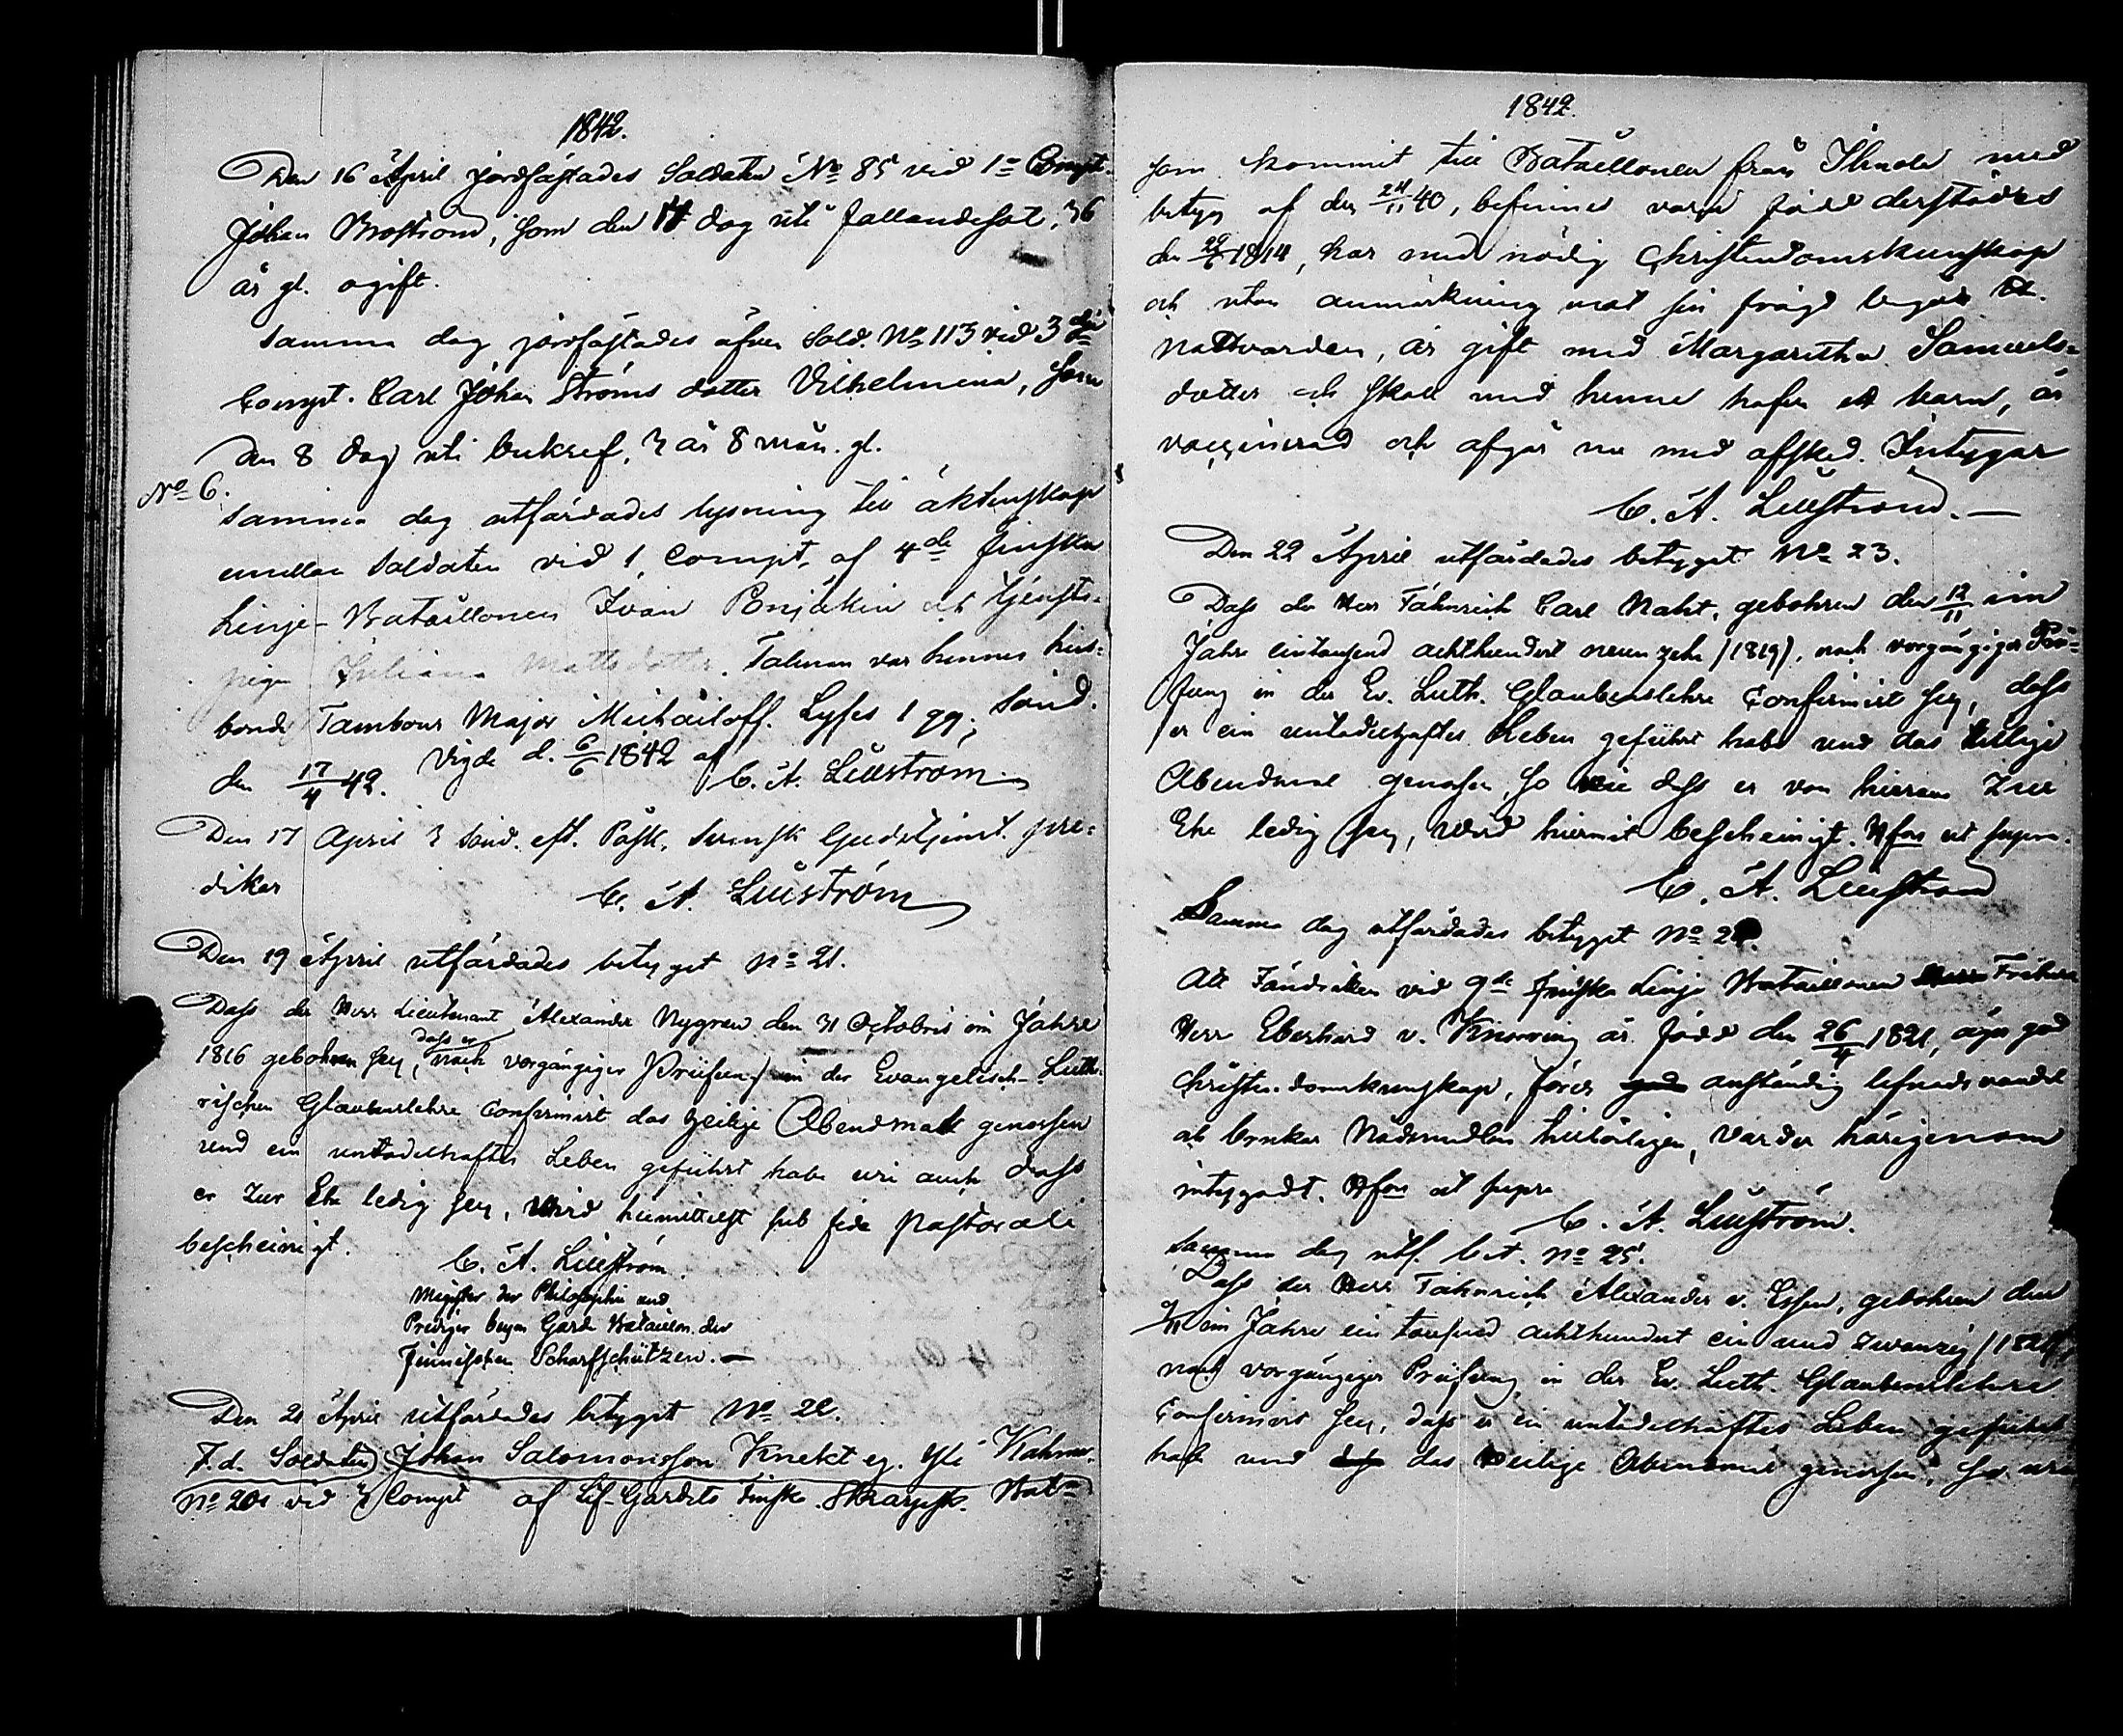 1842.
Den 16 April jordfästades Soldaten No 85 vid 1a Compt.
Johan Broström, som den 14 dog uti fallandesot, 36
år gl. ogift.
Samma dag jordfästades äfven Sold. No 113 vid 3dje
Compt. Carl Johan Ströms dotter Vilhelmina, som
den 8 dog uti bukref, 3 år 8 mån. gl.
No 6.
Samma dag utfärdades lysning till äktenskap
emellan Soldaten vid 1 Compt. af 4de Finska
Linje-Bataillonen Ivan Ponjäkin och tjenste-
pigan Juliana Mattsdotter. Talman var hennes hus-
bonde Tambour Major Michailoff. Lyses 1 gg; Sönd.
den 17/4 42. Vigde d. 6/6 1842 af
C. A. Lilliström
Den 17 April 3 Sönd. eft. Påsk, Svensk Gudstjenst. pre-
dikar
C. A. Lilliström
Den 19 April utfärdades betyget No 21.
Dass der Herr Lieutenant Alexander Nygren den 31 Octobris im Jahre
1816 gebohren sey, dass er nach vorgängiger Prüfung in der Evangelisch-Luthe-
rischen Glaubenslehre confirmirt das heilige Abendmahl genossen
und ein untadelhaftes Leben geführt habe wie auch dass
er zur Ehe ledig sey, wird hiemittelst sub fide pastorali
bescheinigt.
C. A. Lilliström.
Magister der Philosophie und
Prediger beym Garde Bataillon der
Finnischen Scharfschützen.—
Den 21 April utfärdades betyget No 22.
F.d. Soldaten Johan Salomonsson Knekt eg.
No 201 vid 3 Compt af Lif-Gardets Finska Skarpsk. Batn
1842.
som kommit till Bataillonen från med
betyg af den 24/11 40, befinnes vara född derstädes
den 1814, har med nödig Christendomskunskap
och utan anmärkning mot sin frägd begått H.
Nattvarden, är gift med Margaretha Samuels-
dotter och skall med henne hafva ett barn, är
vaccinerad och afgår nu med afsked. Intygar
C. A. Lilliström.—
Den 22 April utfärdades betyget No 23.
Dass der Herr Fähnrich Carl Naht, gebohren den 12/11 im
Jahre eintausend achthundert neunzehn (1819), nach vorgängiger Prü-
fung in der Ev. Luth. Glaubenslehre Confirmirt sey, dass
er ein untadelhaftes Leben geführt habe und das heilige
Abendmal genossen, so wie dass er von hieraus zur
Ehe ledig sey, wird hiermit bescheinigt. Hfors ut supra.
C. A. Lilliström
Samma dag utfärdades betyget No 24.
Att Fändriken vid 9de Finska Linje Bataillonen Friherre
Herr Eberhard v. Knorring är född den 26/4 1821, äger god
Christendomskunskap, förer anständig lefnadsvandel
och brukar Nådemedlen hitintilldags, varder härigenom
intygadt. Hfors ut supra
C. A. Lilliström.
Samma dag utf. bet. No 25.
Dass der Herr Fähnrich Alexander v. Essen, gebohren den
im Jahre ein tausend achthundert ein und zwanzig (1821)
nach vorgängiger Prüfung in der Ev. Luth. Glaubenslehre
Confirmirt sey, dass er ein untadelhaftes Leben geführt
habe und das heilige Abendmal genossen, so wie